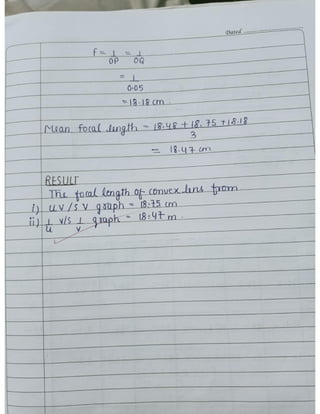 Dated
f = 1/OP = 1/OQ
= 1/0.05
= 18.18 cm
Mean focal length = 18.48 + 18.75 + 18.18 / 3
= 18.47 cm
RESULT
The focal length of convex lens from
i) uv/s v graph = 18.75 cm
ii) 1/u v/s 1/v graph = 18.47 m.